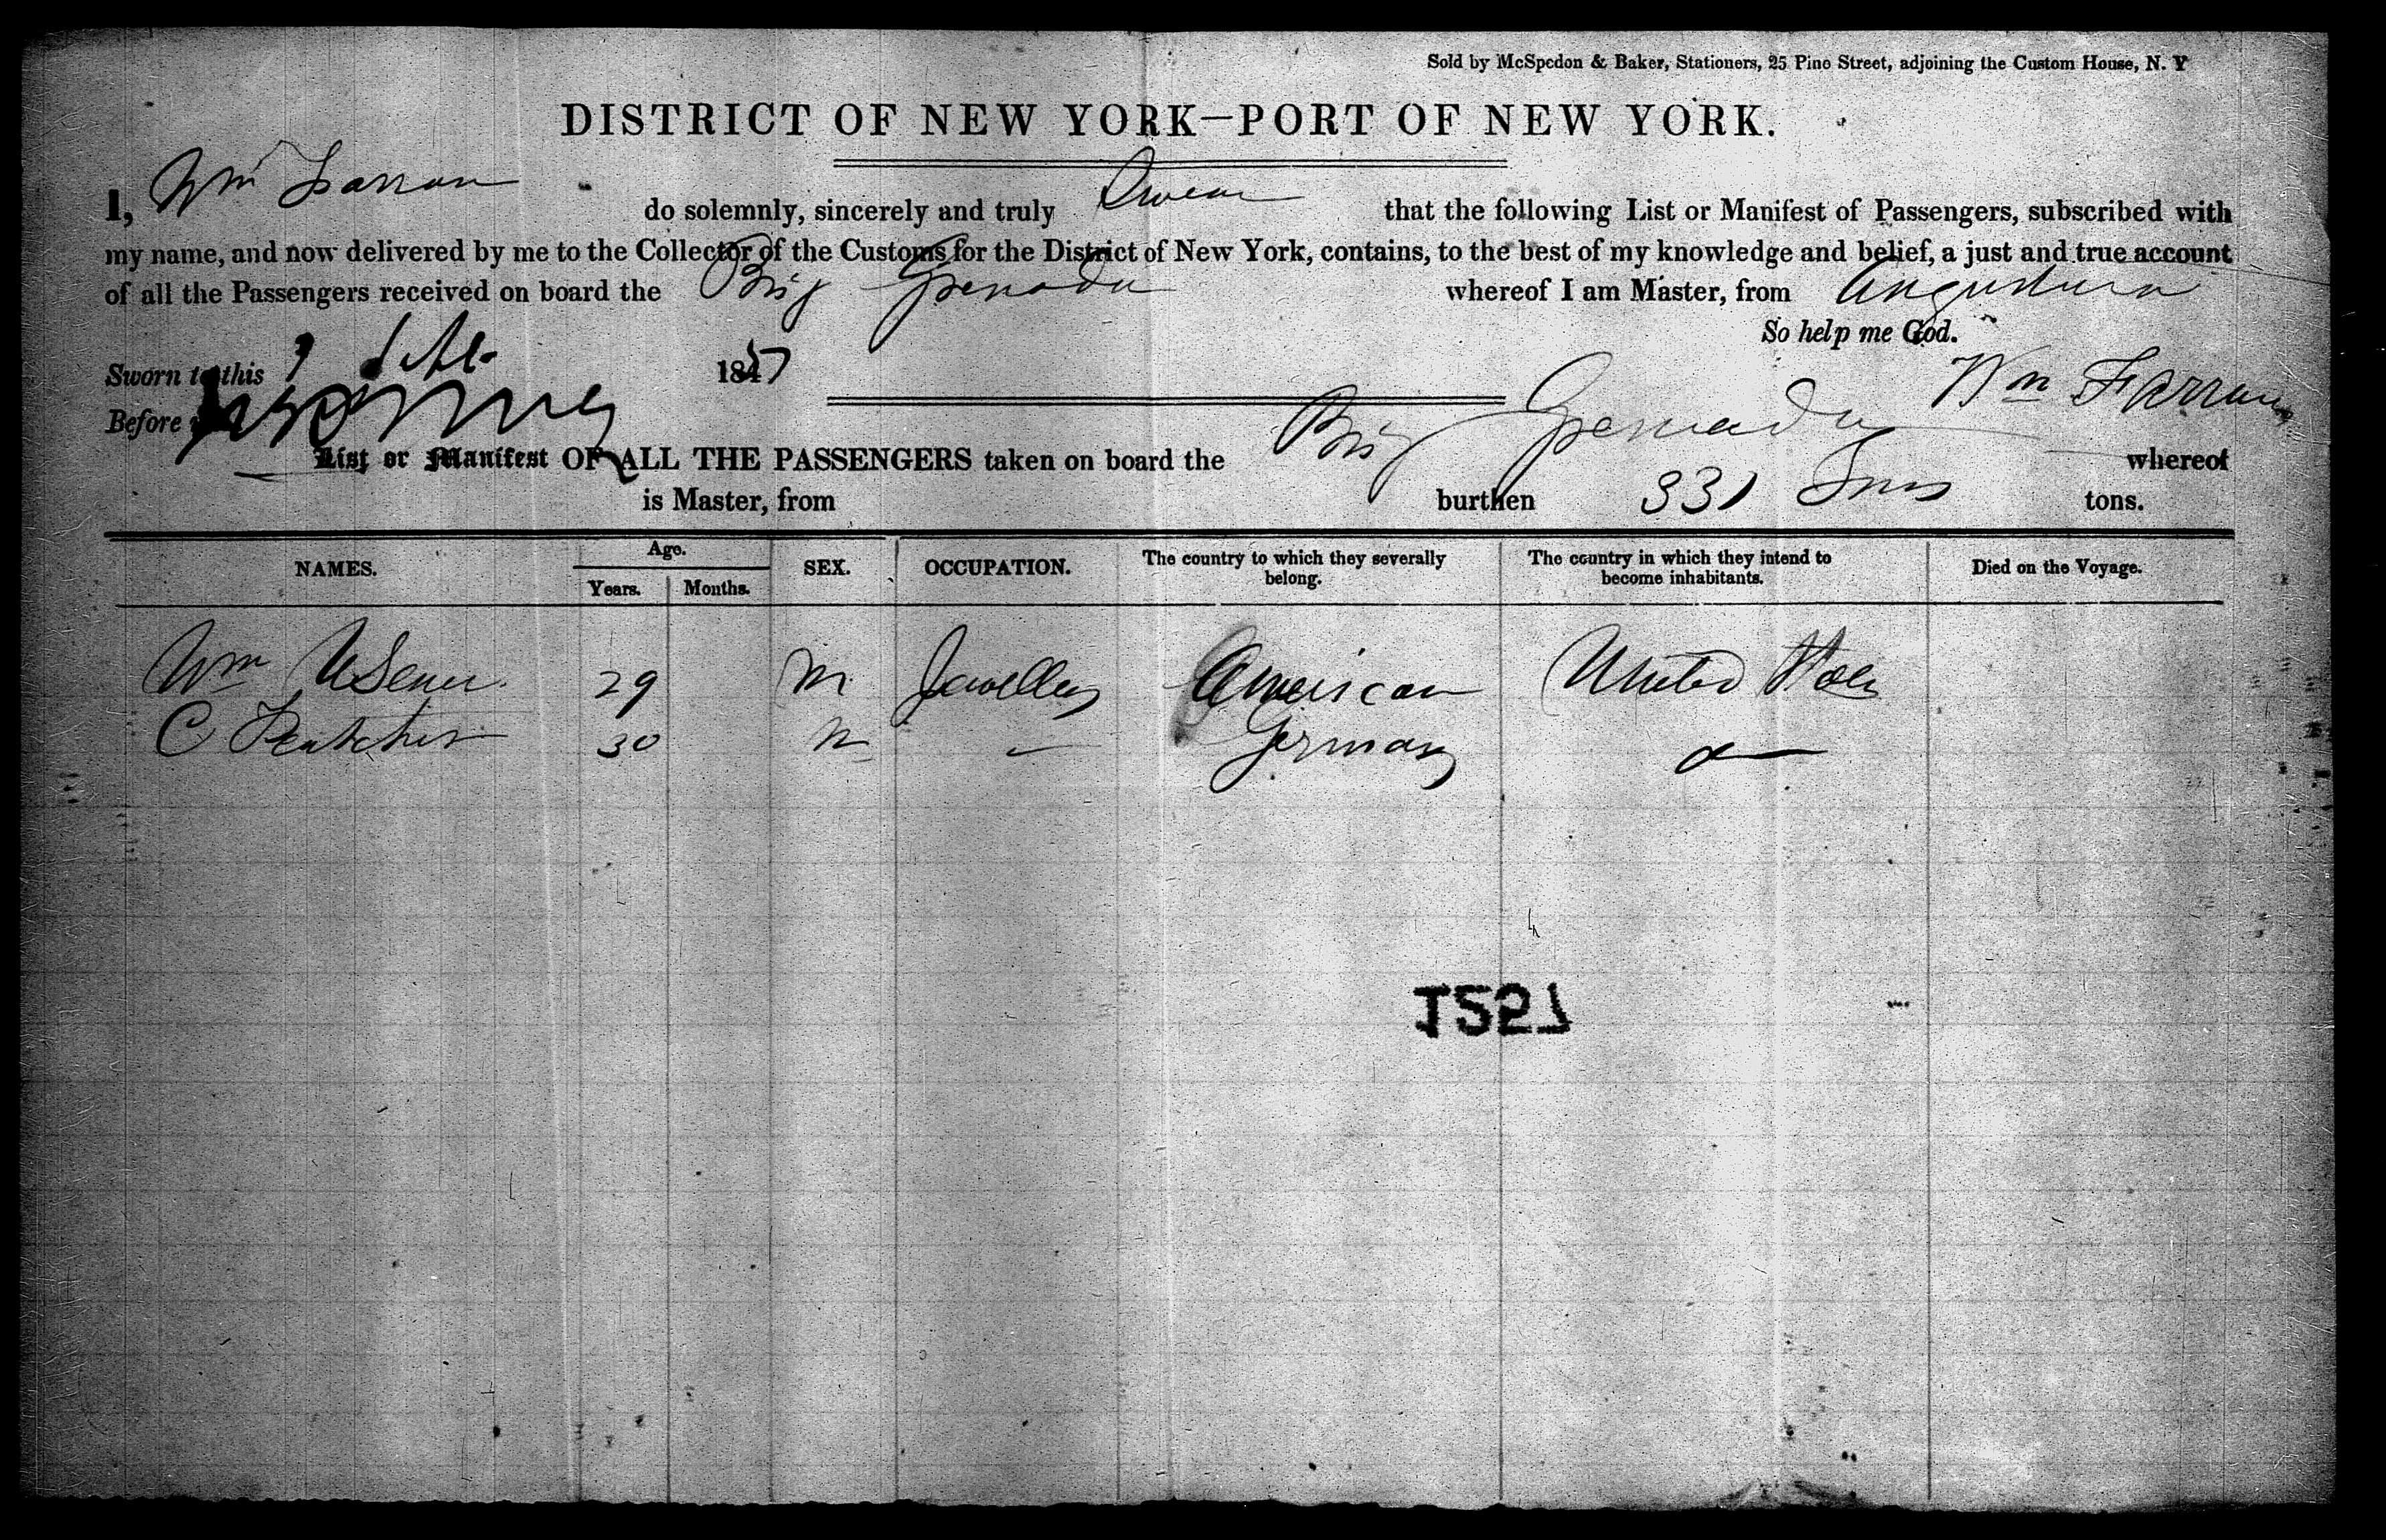 Sold by McSpedon & Baker, Stationers, 25 Pine Street, adjoining the Custom House, N. Y
DISTRICT OF NEW YORK—PORT OF NEW YORK.
I, Wm Farran do solemnly, sincerely and truly Swear that the following List or Manifest of Passengers, subscribed with
my name, and now delivered by me to the Collector of the Customs for the District of New York, contains, to the best of my knowledge and belief, a just and true account
of all the Passengers received on board the Brig Grenada whereof I am Master, from Angustura
So help me God.
Sworn to this 1857
Wm Farran
Before
List or Manifest OF ALL THE PASSENGERS taken on board the Brig Grenada whereof
is Master, from burthen 331 Tons tons.
NAMES. Age. SEX. OCCUPATION. The country to which they severally belong. The country in which they intend to become inhabitants. Died on the Voyage.
Years. Months.
Wm 29 M Jeweller American United States
C 30 M - Germany do
1521